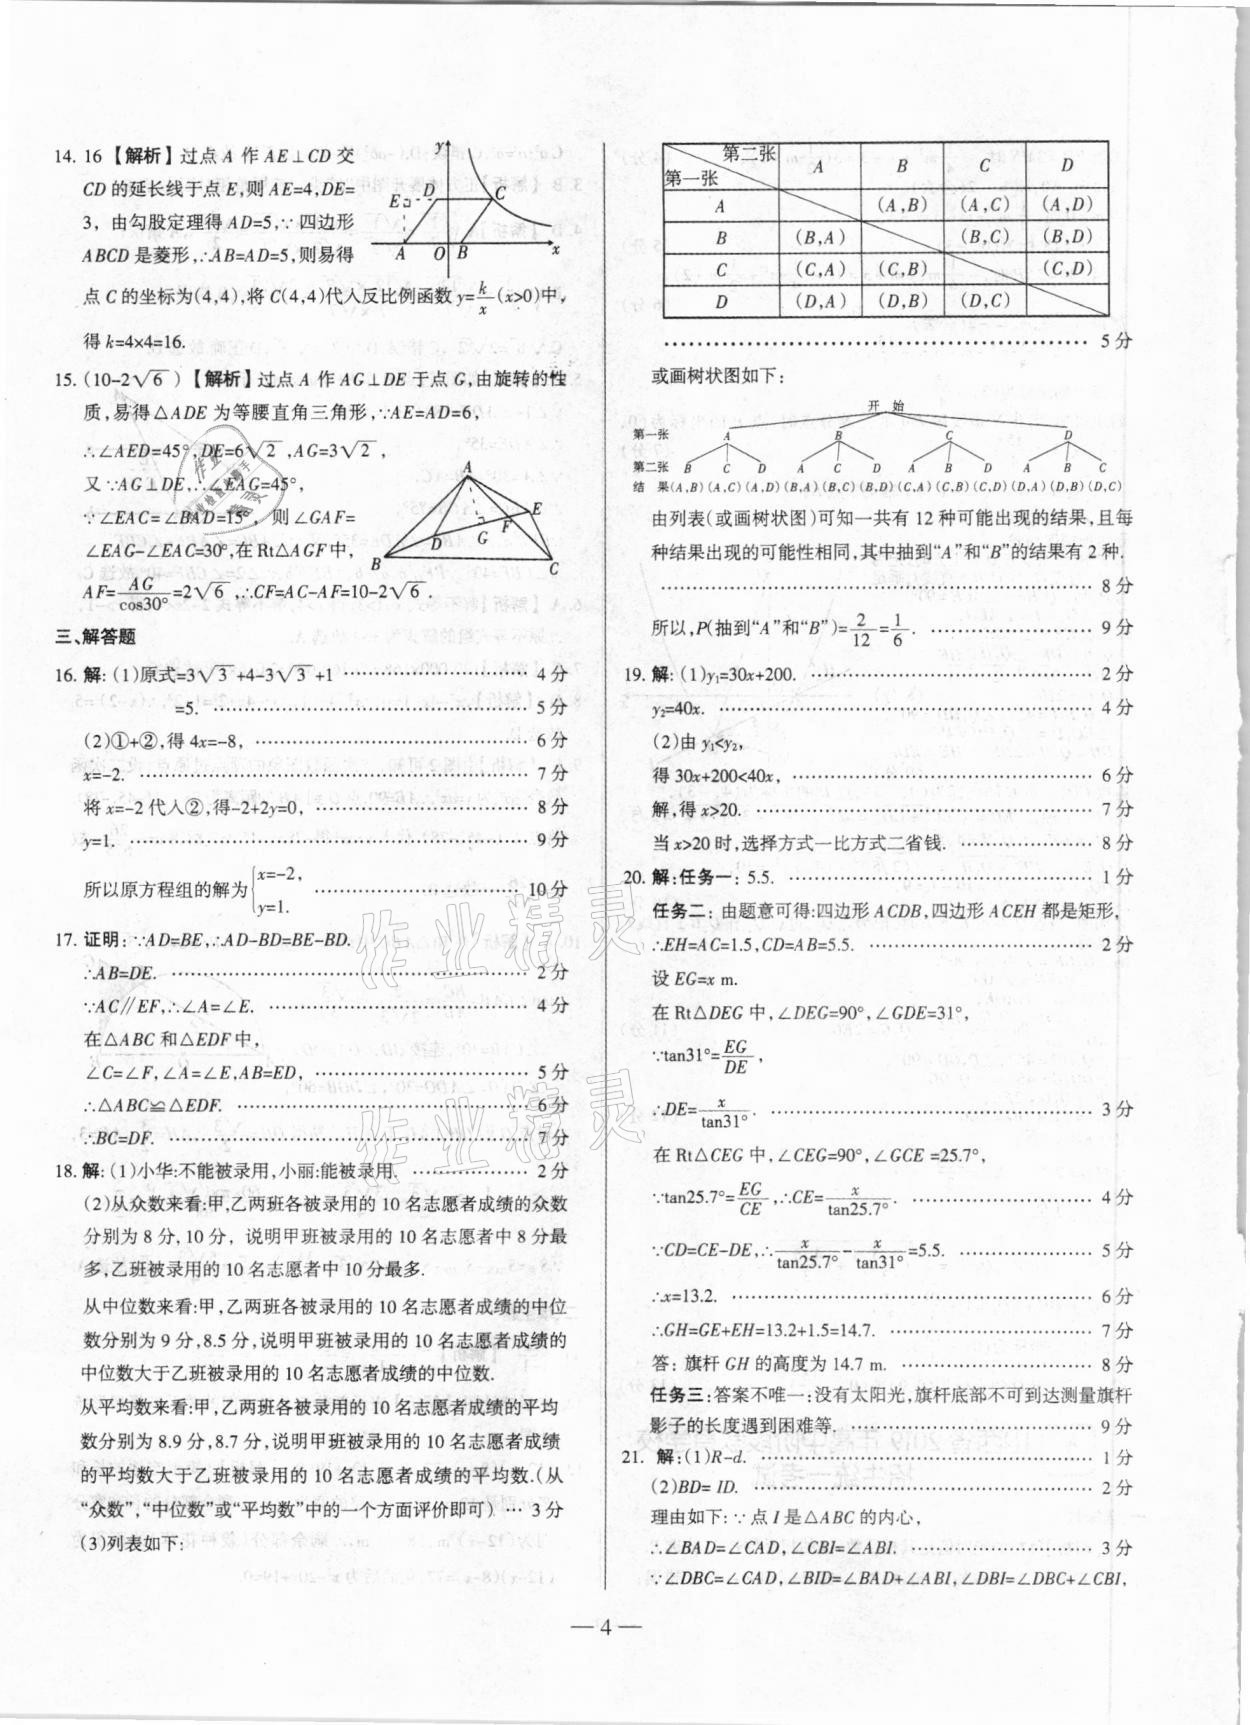 14. 16【解析】过点 A 作 AE⊥CD 交
CD 的延长线于点 E,则 AE=4,DE=
3, 由勾股定理得 AD=5,∵四边形
ABCD 是菱形,∴AB=AD=5,则易得
点 C 的坐标为(4,4),将 C(4,4)代入反比例函数 y=k/x(x>0)中,
得 k=4×4=16.
y
E D C
A O B x
15. (10-2√6)【解析】过点 A 作 AG⊥DE 于点 G,由旋转的性
质,易得△ADE 为等腰直角三角形,∵AE=AD=6,
∴∠AED=45°,DE=6√2,AG=3√2,
又∵AG⊥DE,∴∠EAG=45°,
∵∠EAC=∠BAD=15°, 则∠GAF=
∠EAG-∠EAC=30°,在 Rt△AGF 中,
AF=AG/cos30°=2√6,∴CF=AC-AF=10-2√6.
A
E
G F
D
B C
三、解答题
16. 解:(1)原式=3√3+4-3√3+1 …… 4 分
=5. …… 5 分
(2)①+②,得 4x=-8, …… 6 分
x=-2. …… 7 分
将 x=-2 代入②,得-2+2y=0, …… 8 分
y=1. …… 9 分
所以原方程组的解为{x=-2, y=1. …… 10 分
17. 证明:∵AD=BE,∴AD-BD=BE-BD.
∴AB=DE. …… 2 分
∵AC∥EF,∴∠A=∠E. …… 4 分
在△ABC 和△EDF 中,
∠C=∠F,∠A=∠E,AB=ED, …… 5 分
∴△ABC≌△EDF. …… 6 分
∴BC=DF. …… 7 分
18. 解:(1)小华:不能被录用,小丽:能被录用. …… 2 分
(2)从众数来看:甲,乙两班各被录用的 10 名志愿者成绩的众数
分别为 8 分,10 分, 说明甲班被录用的 10 名志愿者中 8 分最
多,乙班被录用的 10 名志愿者中 10 分最多.
从中位数来看:甲,乙两班各被录用的 10 名志愿者成绩的中位
数分别为 9 分,8.5 分,说明甲班被录用的 10 名志愿者成绩的
中位数大于乙班被录用的 10 名志愿者成绩的中位数.
从平均数来看:甲,乙两班各被录用的 10 名志愿者成绩的平均
数分别为 8.9 分,8.7 分,说明甲班被录用的 10 名志愿者成绩
的平均数大于乙班被录用的 10 名志愿者成绩的平均数.(从
“众数”,“中位数”或“平均数”中的一个方面评价即可) … 3 分
(3)列表如下:
第二张 第一张 A B C D
A (A,B) (A,C) (A,D)
B (B,A) (B,C) (B,D)
C (C,A) (C,B) (C,D)
D (D,A) (D,B) (D,C)
…… 5 分
或画树状图如下:
开 始
第一张 A B C D
第二张 B C D A C D A B D A B C
结 果(A,B)(A,C)(A,D)(B,A)(B,C)(B,D)(C,A)(C,B)(C,D)(D,A)(D,B)(D,C)
由列表(或画树状图)可知一共有 12 种可能出现的结果,且每
种结果出现的可能性相同,其中抽到“A”和“B”的结果有 2 种.
…… 8 分
所以,P(抽到“A”和“B”)=2/12=1/6. …… 9 分
19. 解:(1)y₁=30x+200. …… 2 分
y₂=40x. …… 4 分
(2)由 y₁<y₂,
得 30x+200<40x, …… 6 分
解,得 x>20. …… 7 分
当 x>20 时,选择方式一比方式二省钱. …… 8 分
20. 解:任务一: 5.5. …… 1 分
任务二: 由题意可得:四边形 ACDB,四边形 ACEH 都是矩形,
∴EH=AC=1.5,CD=AB=5.5. …… 2 分
设 EG=x m.
在 Rt△DEG 中,∠DEG=90°,∠GDE=31°,
∵tan31°=EG/DE,
∴DE=x/tan31°. …… 3 分
在 Rt△CEG 中,∠CEG=90°,∠GCE =25.7°,
∵tan25.7°=EG/CE,∴CE=x/tan25.7°. …… 4 分
∵CD=CE-DE,∴x/tan25.7°-x/tan31°=5.5. …… 5 分
∴x=13.2. …… 6 分
∴GH=GE+EH=13.2+1.5=14.7. …… 7 分
答: 旗杆 GH 的高度为 14.7 m. …… 8 分
任务三:答案不唯一:没有太阳光,旗杆底部不可到达测量旗杆
影子的长度遇到困难等. …… 9 分
21. 解:(1)R-d. …… 1 分
(2)BD= ID. …… 2 分
理由如下:∵点 I 是△ABC 的内心,
∴∠BAD=∠CAD,∠CBI=∠ABI. …… 3 分
∵∠DBC=∠CAD,∠BID=∠BAD+∠ABI,∠DBI=∠DBC+∠CBI,
— 4 —
作业精灵
作业精灵